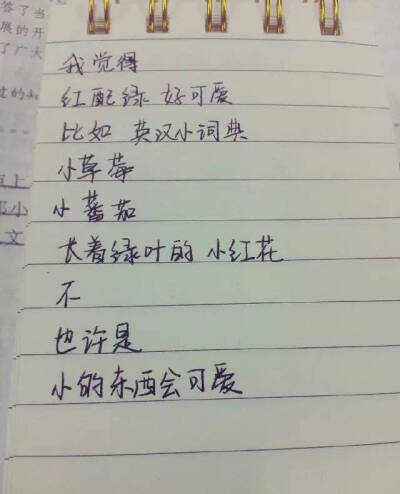 答了当
展的开
了广大
我觉得
红配绿 好可爱
比如 英汉小词典
小草莓
小蕃茄
长着绿叶的 小红花
不
也许是
小的东西会可爱